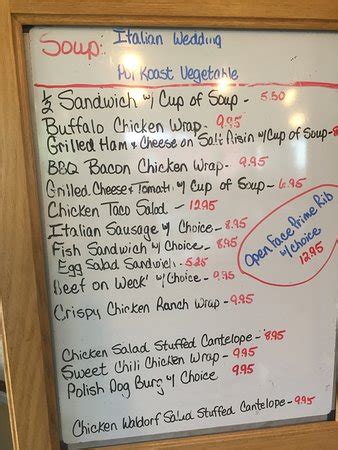 Soup: Italian Wedding
Pot Roast Vegetable
1/2 Sandwich w/ Cup of Soup - 5.50
Buffalo Chicken Wrap - 9.95
Grilled Ham & Cheese on Salt Risin w/ Cup of Soup -
BBQ Bacon Chicken Wrap - 9.95
Grilled Cheese & Tomato w/ Cup of Soup - 6.95
Chicken Taco Salad - 12.95
Italian Sausage w/ Choice - 8.95
Fish Sandwich w/ Choice - 8.95
Egg Salad Sandwich - 5.25
Beef on Weck' w/ Choice - 9.95
Open Face Prime Rib
w/ choice
12.95
Crispy Chicken Ranch Wrap - 9.95
Chicken Salad Stuffed Cantelope - 8.95
Sweet Chili Chicken Wrap - 9.95
Polish Dog Burg w/ Choice 9.95
Chicken Waldorf Salad Stuffed Cantelope - 9.95